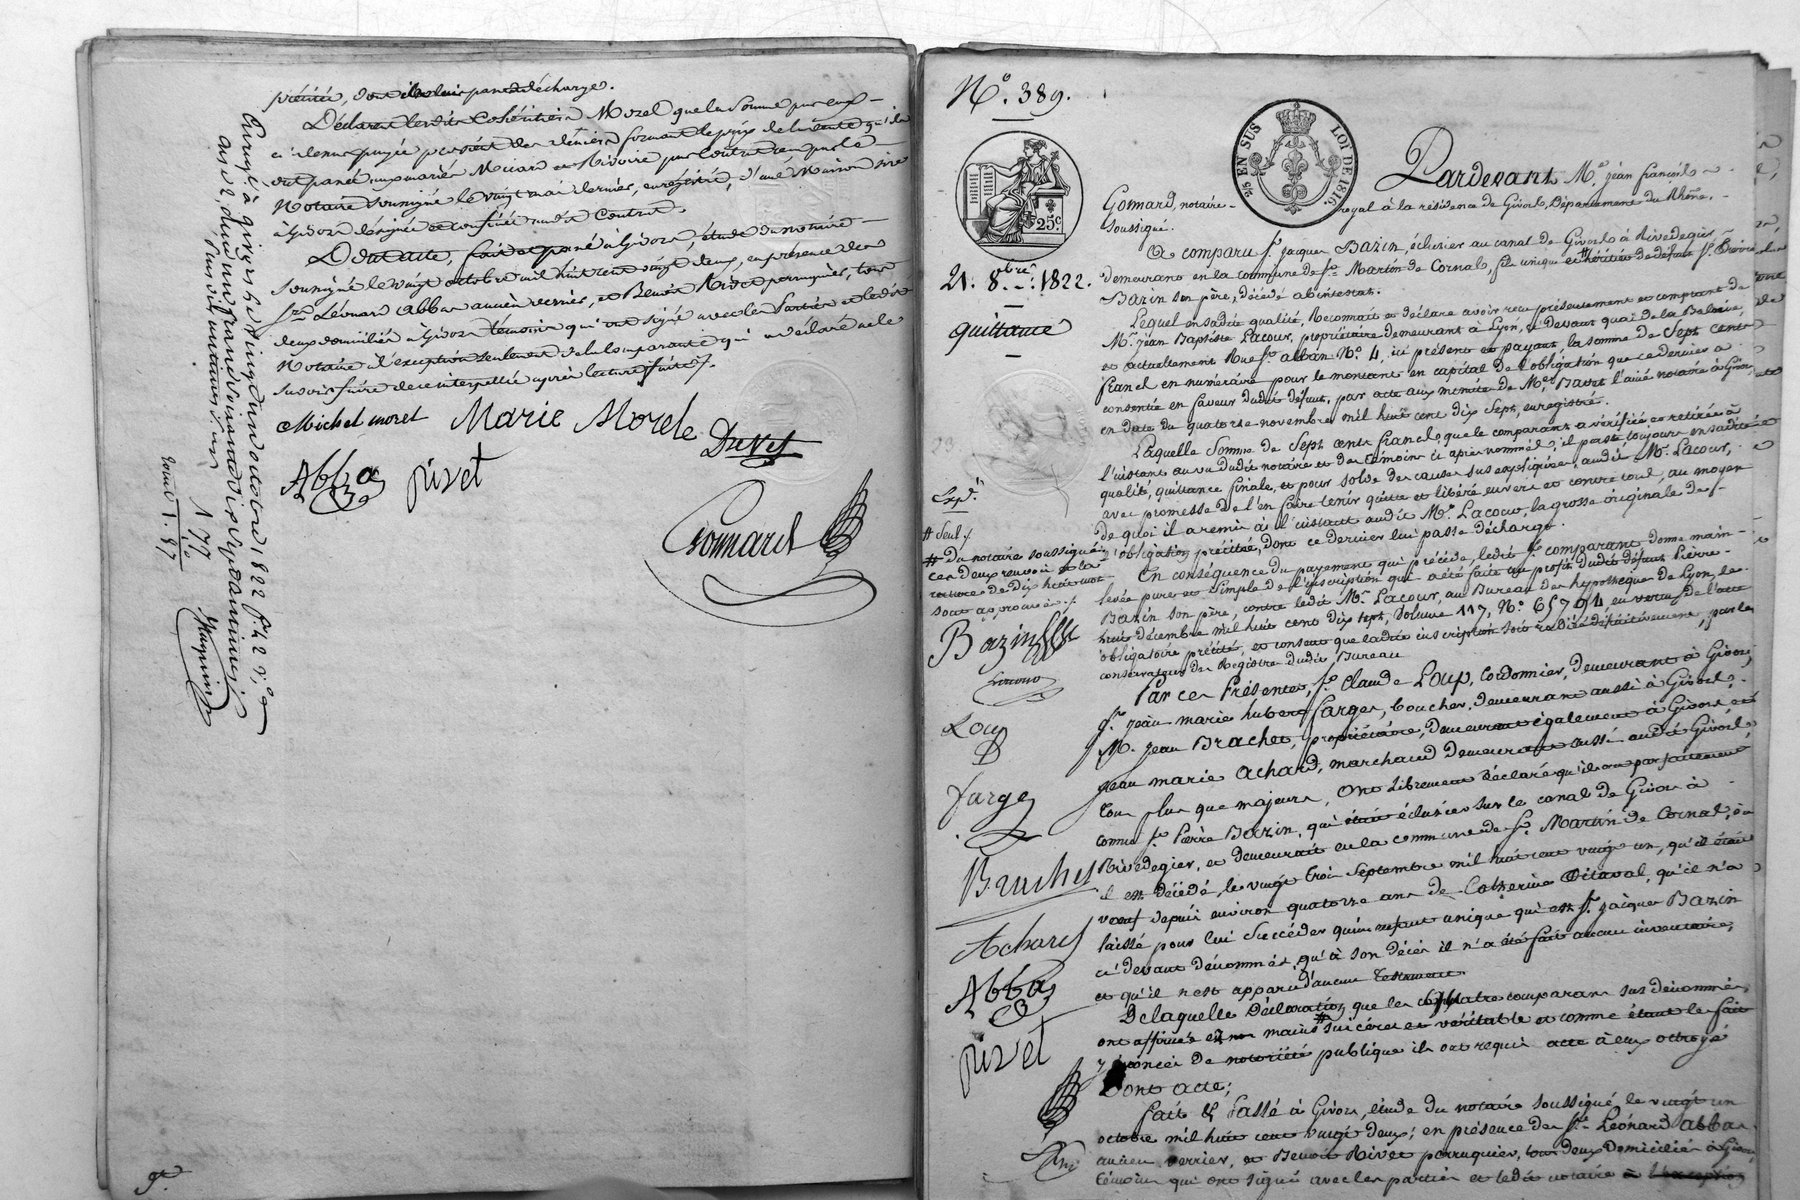 précitée, dont ils leur passent décharge.
Déclarent lesdits Cohéritiers Morel que la somme par eux
ci-dessus payée provient des deniers formant le prix de la vente qu'ils
ont passée aux mariés Micard et Rivoire par Contrat reçu par le
Notaire soussigné le vingt mai dernier, enregistré, d'une Maison sise
à Givors désignée et confinée audit Contrat.
Dont acte, fait et passé à Givors, étude du notaire
soussigné le vingt octobre mil huit cent vingt deux, en présence des
Srs Léonard Abba ancien verrier, et Benoit Rivet perruquier, tous
deux domiciliés à Givors témoins qui ont signé avec les parties et ledit
Notaire à l'exception seulement de la comparante qui a déclaré ne le
savoir faire de ce interpellée après lecture faite ./.
Michel morel Marie Morele
Abba rivet
Gonnard
Enregé à Givors le vingt un octobre 1822 fo
N°. 389.
25 EN SUS LOI DE 1816.
25c.
21. 8bre. 1822.
quittance
Pardevant Me. jean françois
Gonnard, notaire royal à la résidence de Givors, Département du Rhône,
soussigné.
A comparu sr. jacques Bazin, éclusier au canal de Givors à Rivedegier,
demeurant en la commune de St. Martin de Cornas, fils unique et héritier de défunt sr. Pierre
Bazin son père, décédé abintestat.
Lequel en sadite qualité, Reconnait et déclare avoir reçu présentement et comptant de
Mr. jean Baptiste Lacour, propriétaire demeurant à Lyon, ci Devant quai de la Baleine,
et actuellement Rue St. alban No. 4, ici présent et payant la somme de Sept cents
francs en numéraire pour le montant en capital de l'obligation que ce dernier a
consentie en faveur dudit défunt, par acte aux minutes de Me. Bavet l'ainé notaire à Givors
en date du quatorze novembre mil huit cent dix sept, enregistré.
Laquelle Somme de Sept cents francs, que le comparant a vérifiée et retirée à
l'instant au vu dudit notaire et des témoins ci après nommés, il passe toujours en sadite
qualité, quittance finale, et pour solde des causes sus expliquées, audit Mr. Lacour,
avec promesse de l'en faire tenir quitte et libéré envers et contre tous, au moyen
de quoi il a remis à l'instant audit Mr. Lacour, la grosse originale de
l'obligation précitée, dont ce dernier lui passe décharge.
En conséquence du payement qui précède, ledit sr. comparant donne main-
levée pure et simple de l'inscription qui a été faite au profit dudit défunt Pierre
Bazin son père, contre ledit Mr. Lacour, au Bureau des hypothèques de Lyon, le
huit décembre mil huit cent dix sept, volume 117, No. 65794, en vertu de l'acte
obligatoire précité, et consent que ladite inscription soit radiée définitivement, par le
conservateur des Registres dudit Bureau
Par ces Présentes, sr. Claude Loup, Cordonnier, demeurant à Givors,
sr. jean marie hubert farges, boucher, demeurant aussi à Givors,
Mr. jean Brachet, propriétaire, demeurant également à Givors et
jean marie achard, marchand demeurant aussi audit Givors,
tous plus que majeurs, ont librement déclaré qu'ils ont parfaitement
connu sr. Pierre Bazin, qui était éclusier sur le canal de Givors à
Rivedegier, et demeurait en la commune de St. Martin de Cornas, où
il est décédé, le vingt trois Septembre mil huit cent vingt un, qu'il était
veuf depuis environ quatorze ans de Catherine Oitaval, qu'il n'a
laissé pour lui succéder qu'un enfant unique qui est sr. jacques Bazin
ci devant dénommé, qu'à son décès il n'a été fait aucun inventaire,
et qu'il n'est apparu d'aucun testament.
De laquelle Déclaration que les quatre comparans sus dénommés
ont affirmée en mains # sincère et véritable et comme étant les faits
y énoncés de notoriété publique ils ont requis acte à eux octroyé
Dont acte;
fait & Passé à Givors, étude du notaire soussigné, le vingt un
octobre mil huit cent vingt deux; en présence des srs. Léonard abba
ancien verrier, et Benoit Rivet perruquier, tous deux Domiciliés à Givors,
témoins qui ont signé avec les parties et ledit notaire
# seul ./.
# Du notaire soussigné
ces deux renvois et la
rature de dix huit mots
sont approuvés ./.
Bazin
Lacour
Loup
farges
Brachet
Achard
Abba
rivet